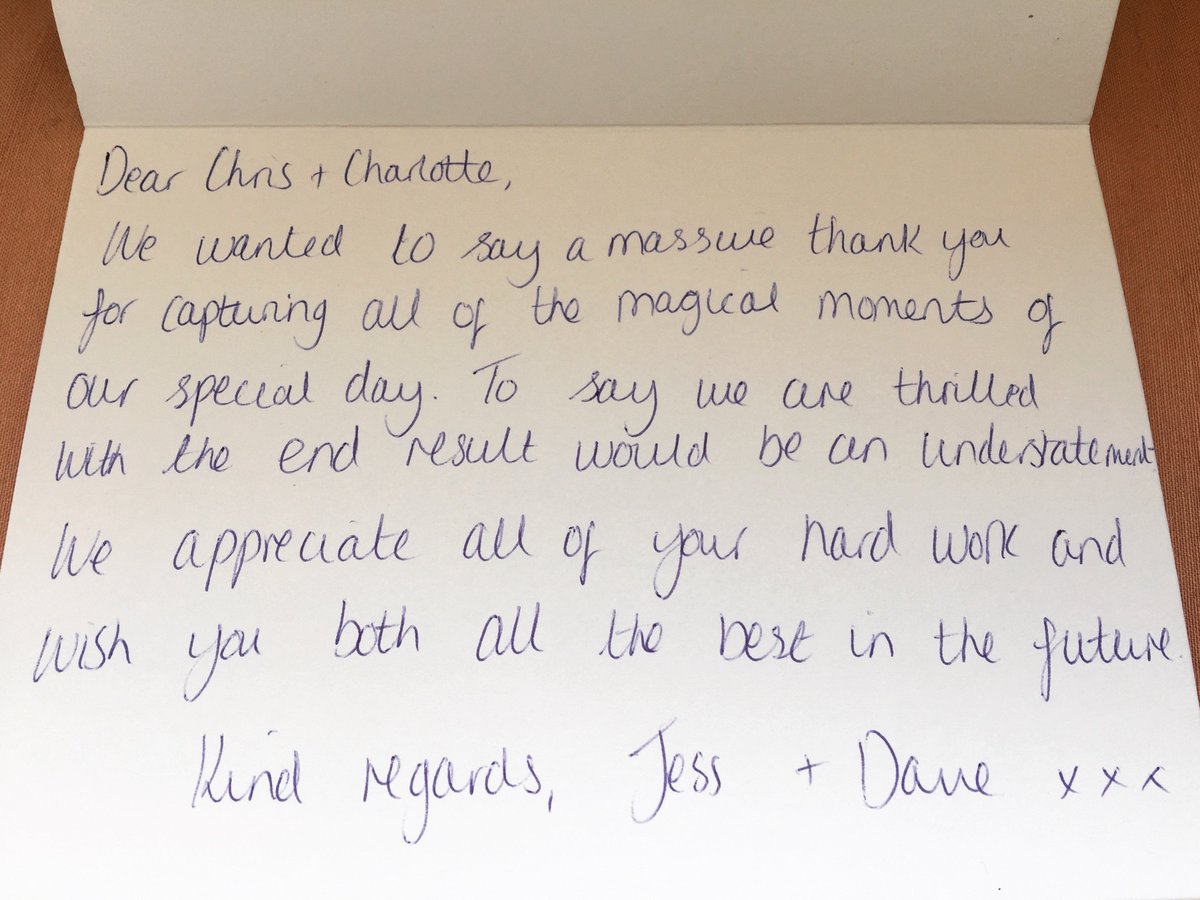 Dear Chris + Charlotte,
We wanted to say a massive thank you
for capturing all of the magical moments of
our special day. To say we are thrilled
with the end result would be an understatement
We appreciate all of your hard work and
wish you both all the best in the future.
Kind regards, Jess + Dave x x x